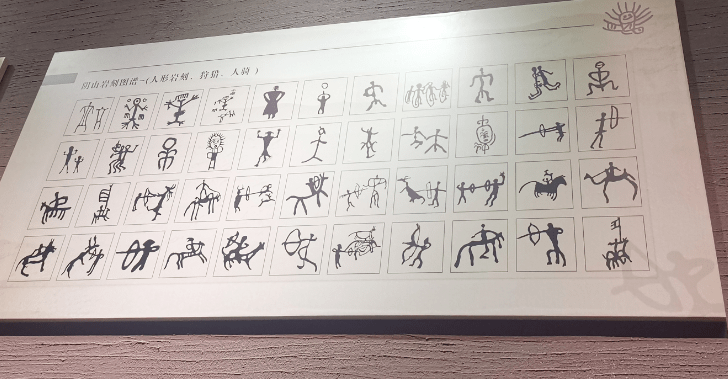 阴山岩刻图谱-(人形岩刻、狩猎、人骑)